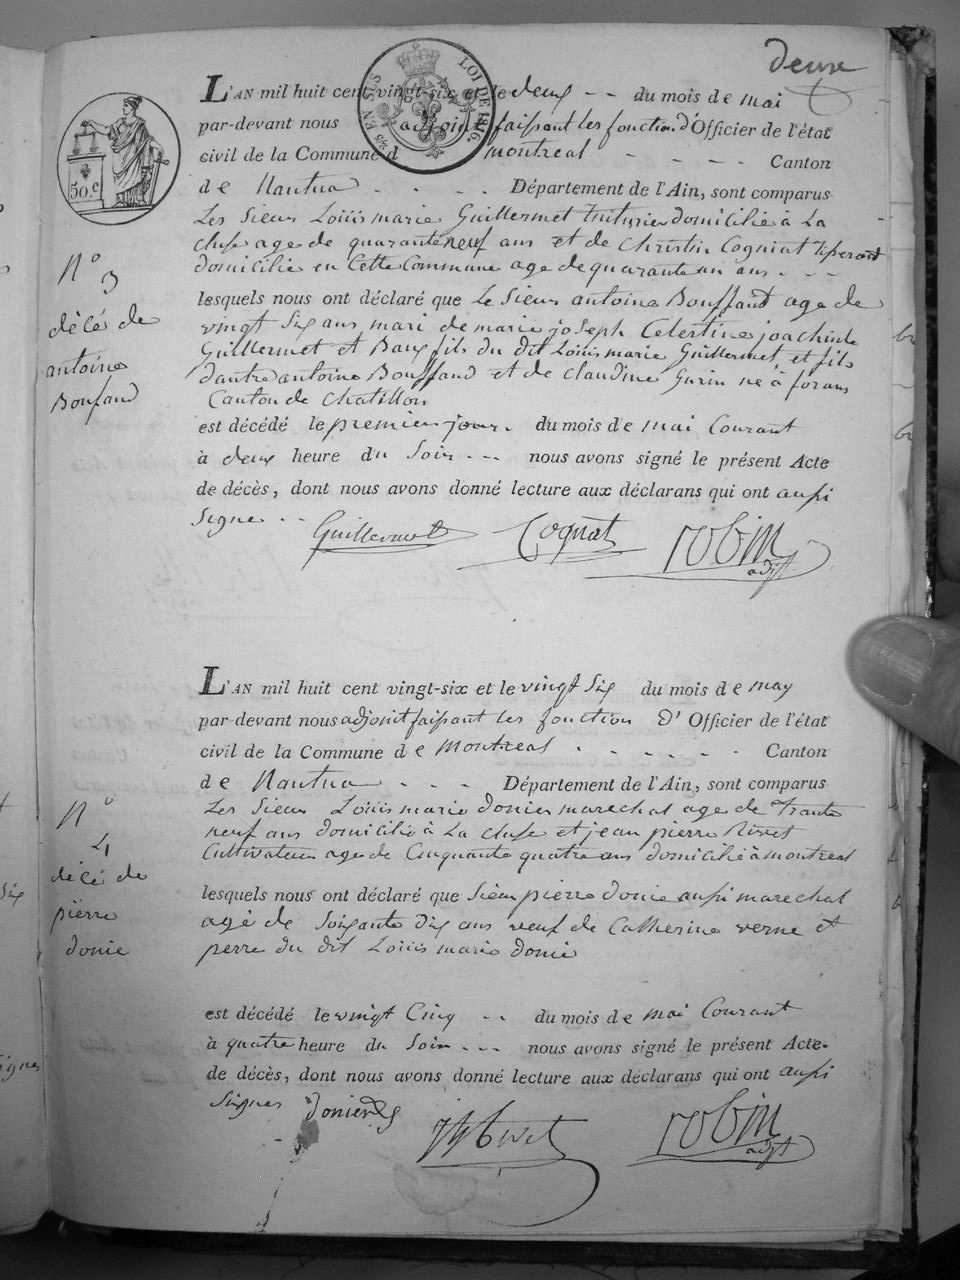 deuxe
LOI DE 1816.
EN SUS
50.c
L'AN mil huit cent vingt-six et le deux -- du mois de mai
par-devant nous adjoint faisant les fonction d'Officier de l'état
civil de la Commune d montreal - - - - Canton
de Nantua - - - - Département de l'Ain, sont comparus
Les Sieur Louis marie Guillermet domicilié à La
cluse age de quarante neuf ans et de Christin Cogniat
domicilié en Cette Commune age de quarante un ans - - -
lesquels nous ont déclaré que Le Sieur antoine Bouffand age de
vingt Six ans mari de marie joseph Celestine joachine
Guillermet et Baux fils du dit Louis marie Guillermet et fils
d'autre antoine Bouffand et de claudine Gurin né à forans
Canton de Chatillon
est décédé le premier jour. du mois de mai Courant
à deux heure du Soir - - - nous avons signé le présent Acte
de décès, dont nous avons donné lecture aux déclarans qui ont aussi
Signe - -
Guillermet Cognat robin adjt
N° 3
décé de
antoine
Boufand
L'AN mil huit cent vingt-six et le vingt Six du mois de may
par-devant nous adjoint faisant les fonction D'Officier de l'état
civil de la Commune de montreal - - - - - - Canton
de Nantua - - - - Département de l'Ain, sont comparus
Les Sieur Louis marie donier marechal age de trante
neuf ans domicilié à La cluse et jean pierre Rivet
Cultivateur age de Cinquante quatre ans domicilié à montreal
lesquels nous ont déclaré que Sieur pierre donie aussi marechal
agé de Soixante Dix ans veuf de Catherine verne et
perre du dit Louis marie donie
est décédé le vingt Cinq -- du mois de mai Courant
à quatre heure du Soir - - - nous avons signé le présent Acte
de décès, dont nous avons donné lecture aux déclarans qui ont aussi
Signes
robin adjt
N° 4
décé de
pierre
donie